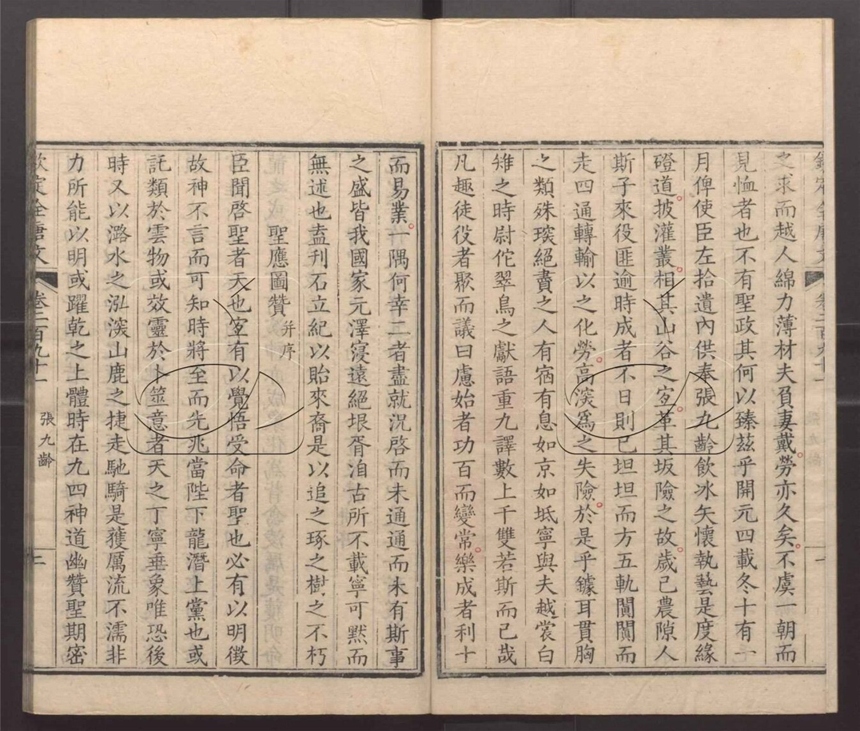 之求而越人綿力薄材夫負妻戴勞亦久矣不虞一朝而
見恤者也不有聖政其何以臻茲乎開元四載冬十有一
月俾使臣左拾遺內供奉張九齡飲冰矢懷執藝是度緣
磴道披灌叢相其山谷之宜革其坂險之故歲已農隙人
斯子來役匪逾時成者不日則已坦坦而方五軌闐闐而
走四通轉輸以之化勞高深為之失險於是乎鐻耳貫胸
之類殊琛絕贐之人有宿有息如京如坻寧與夫越裳白
雉之時尉佗翠鳥之獻語重九譯數上千雙若斯而已哉
凡趣徒役者聚而議曰慮始者功百而變常樂成者利十
而易業一隅何幸二者盡就況啓而未通通而未有斯事
之盛皆我國家元澤寖遠絕垠胥洎古所不載寧可默而
無述也盍刊石立紀以貽來裔是以追之琢之樹之不朽
聖應圖贊并序
臣聞啓聖者天也宜有以覺悟受命者聖也必有以明徵
故神不言而可知時將至而先兆當陛下龍潛上黨也或
託類於雲物或效靈於卜筮意者天之丁寧垂象唯恐後
時又以潞水之泓淡山鹿之捷走馳騎是獲厲流不濡非
力所能以明或躍乾之上體時在九四神道幽贊聖期密
欽定全唐文
卷二百九十一
張九齡
二